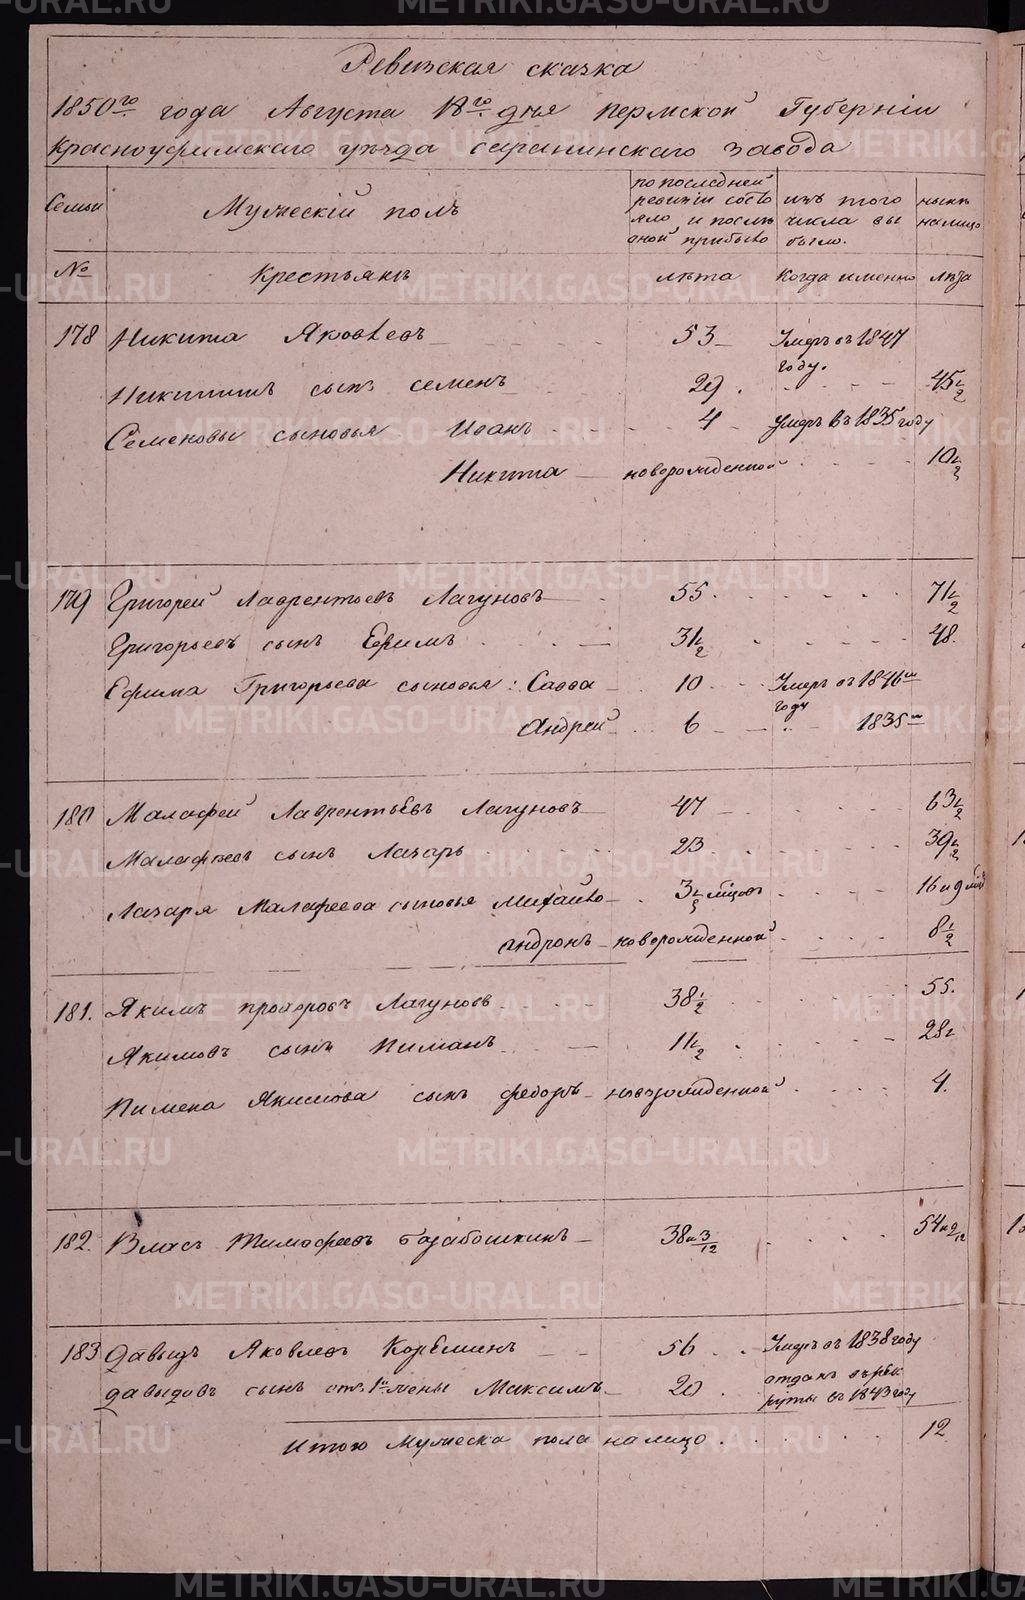 Ревизская сказка
1850го года Августа 18го дня Пермской Губернiи
Красноуфимскаго уезда саранинскаго завода
Семьи
Мужескiй полъ
по последней ревизiи состояло и после оной прибыло
изъ того числа выбыло.
ныне налицо
№
Крестьянъ
лѣта
Когда именно
лѣта
178 Никита Яковлевъ 53 Умеръ въ 1847 году.
Никитинъ сынъ семенъ 29 45½
Семеновы сыновья Иванъ 4 умеръ въ 1835 году
Никита новорожденной 10½
179 Григорей Лаврентьевъ Лагуновъ 55 71½
Григорьевъ сынъ Ефимъ 31½ 48.
Ефима Григорьева сыновья: Савва 10 Умеръ въ 1846м году
Андрей 6 " 1835м
180 Малафей Лаврентьевъ Лагуновъ 47 63½
Малафеевъ сынъ Лазарь 23 39½
Лазаря Малафеева сыновья Михайло 16 и 9
андронъ новорожденной 8½
181. Якимъ прохоровъ Лагуновъ 38½ 55.
Якимовъ сынъ Пиманъ 11½ 28
Пимена Якимова сынъ федоръ новорожденной 4.
182. Власъ Тимофеевъ 38 и 3/12 54 и 9/12
183 Давыдъ Яковлевъ 56 Умеръ въ 1838 году
давыдовъ сынъ от 1й жены Максимъ 20 отданъ въ рекруты въ 1843 году
Итого Мужеска пола налицо 12
METRIKI.GASO-URAL.RU